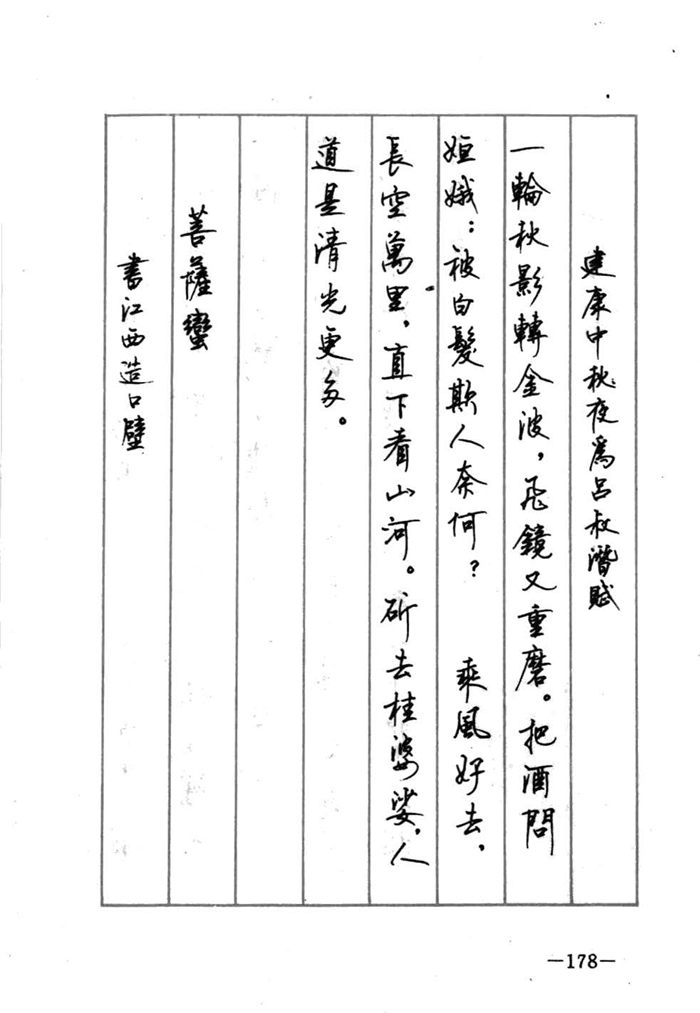 建康中秋夜為呂叔潛賦
一輪秋影轉金波，飛鏡又重磨。把酒問
姮娥：被白髮欺人奈何？　乘風好去，
長空萬里，直下看山河。斫去桂婆娑，人
道是清光更多。
菩薩蠻
書江西造口壁
—178—